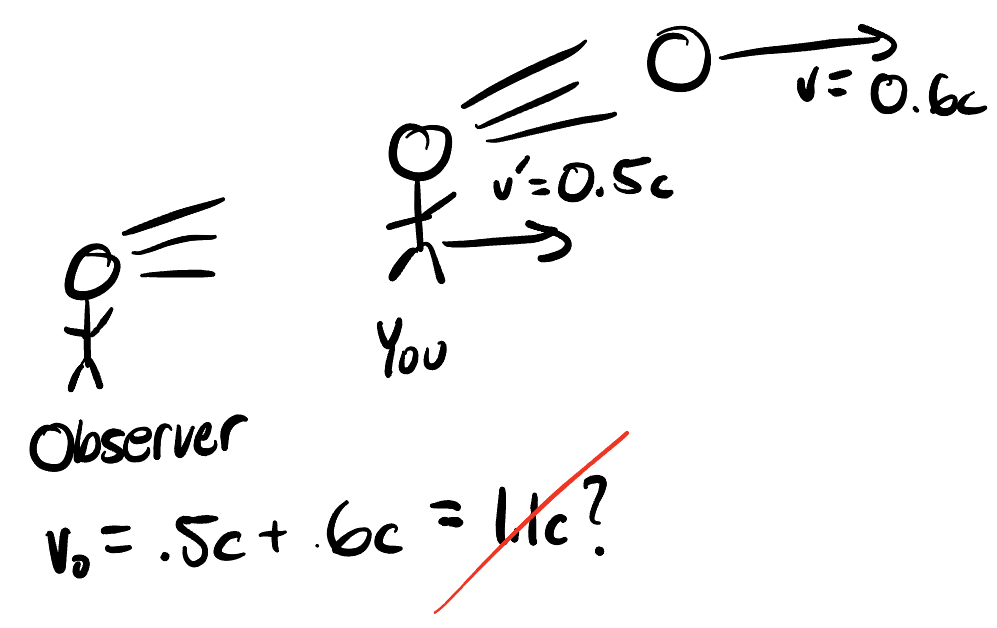 v = 0.6c
v' = 0.5c
You
Observer
v₀ = .5c + .6c = 1.1c?